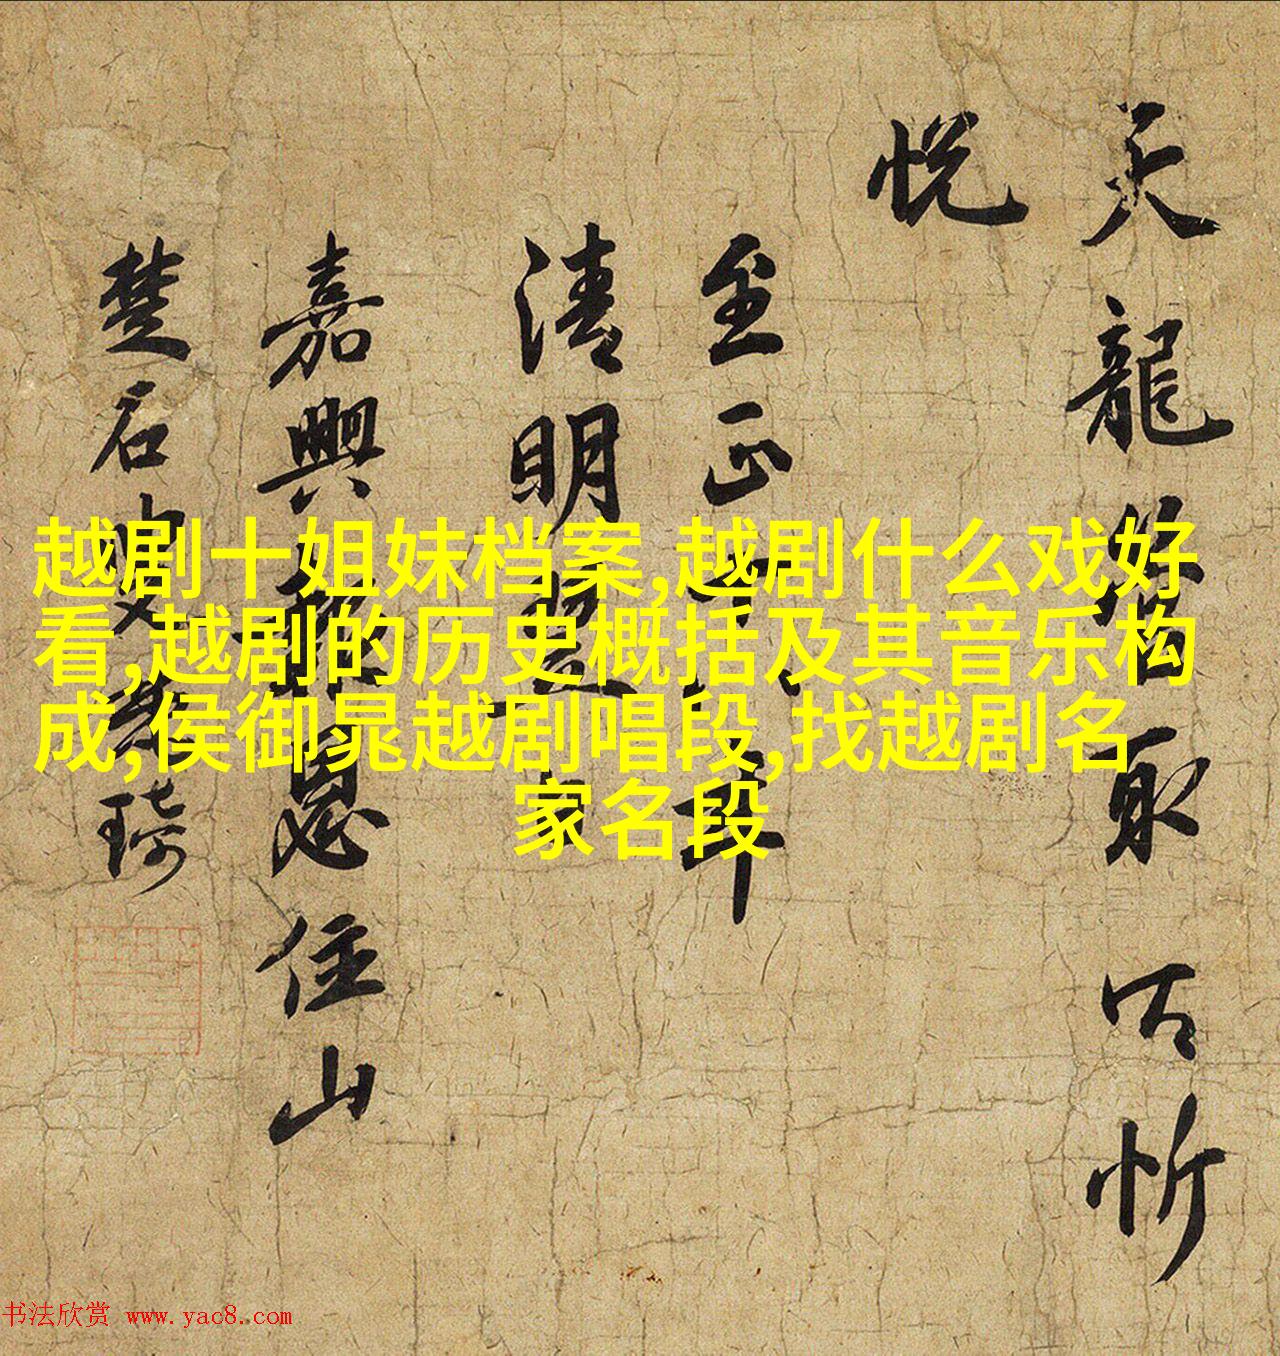 天龍取忻
悦
至正年
清明
嘉興恩住山
楚石琦
越剧十姐妹档案,越剧什么戏好
看,越剧的历史概括及其音乐构
成,侯御晁越剧唱段,找越剧名
家名段
书法欣赏 www.yac8.com